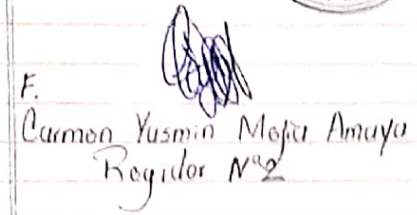 F.
Carmen Yusmin Mejia Amaya
Regidor Nº2